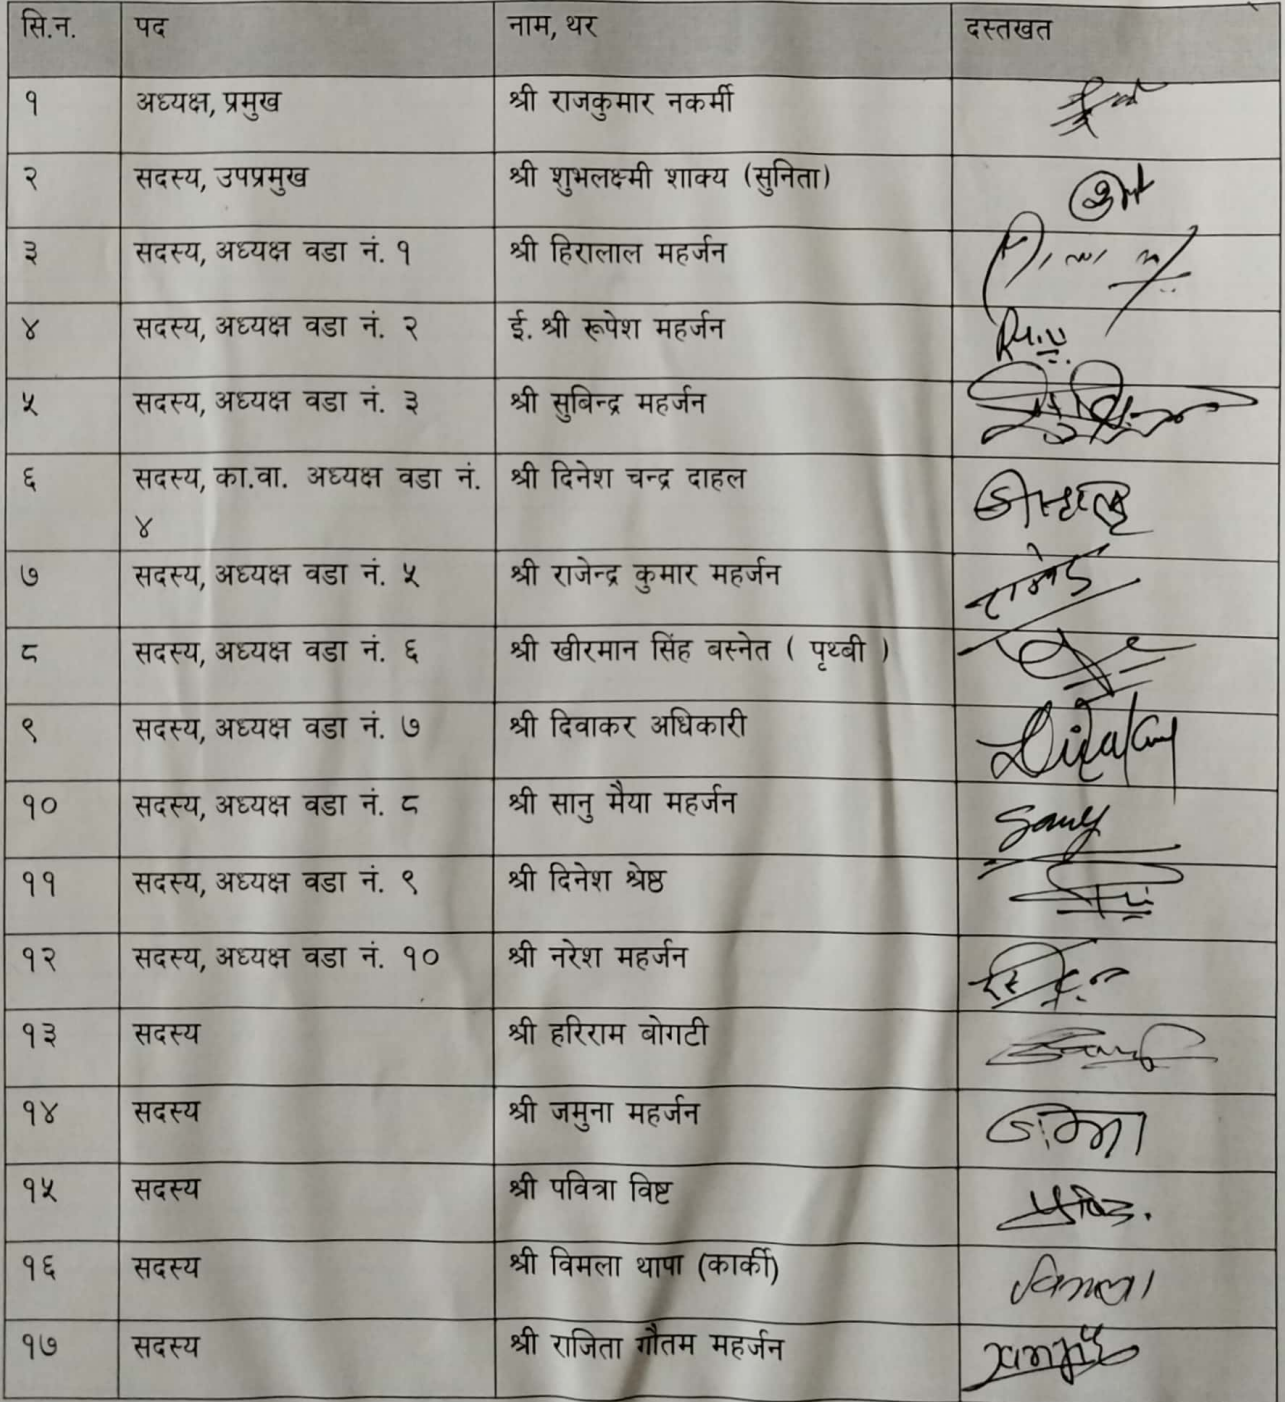 सि.न. पद नाम, थर दस्तखत
१ अध्यक्ष, प्रमुख श्री राजकुमार नकर्मी
२ सदस्य, उपप्रमुख श्री शुभलक्ष्मी शाक्य (सुनिता)
३ सदस्य, अध्यक्ष वडा नं. १ श्री हिरालाल महर्जन
४ सदस्य, अध्यक्ष वडा नं. २ ई. श्री रूपेश महर्जन
५ सदस्य, अध्यक्ष वडा नं. ३ श्री सुबिन्द्र महर्जन
६ सदस्य, का.वा. अध्यक्ष वडा नं. श्री दिनेश चन्द्र दाहल
४
७ सदस्य, अध्यक्ष वडा नं. ५ श्री राजेन्द्र कुमार महर्जन
८ सदस्य, अध्यक्ष वडा नं. ६ श्री खीरमान सिंह बस्नेत ( पृथ्बी )
९ सदस्य, अध्यक्ष वडा नं. ७ श्री दिवाकर अधिकारी
१० सदस्य, अध्यक्ष वडा नं. ८ श्री सानु मैया महर्जन
११ सदस्य, अध्यक्ष वडा नं. ९ श्री दिनेश श्रेष्ठ
१२ सदस्य, अध्यक्ष वडा नं. १० श्री नरेश महर्जन
१३ सदस्य श्री हरिराम बोगटी
१४ सदस्य श्री जमुना महर्जन
१५ सदस्य श्री पवित्रा विष्ट
१६ सदस्य श्री विमला थापा (कार्की) विमला
१७ सदस्य श्री राजिता गौतम महर्जन